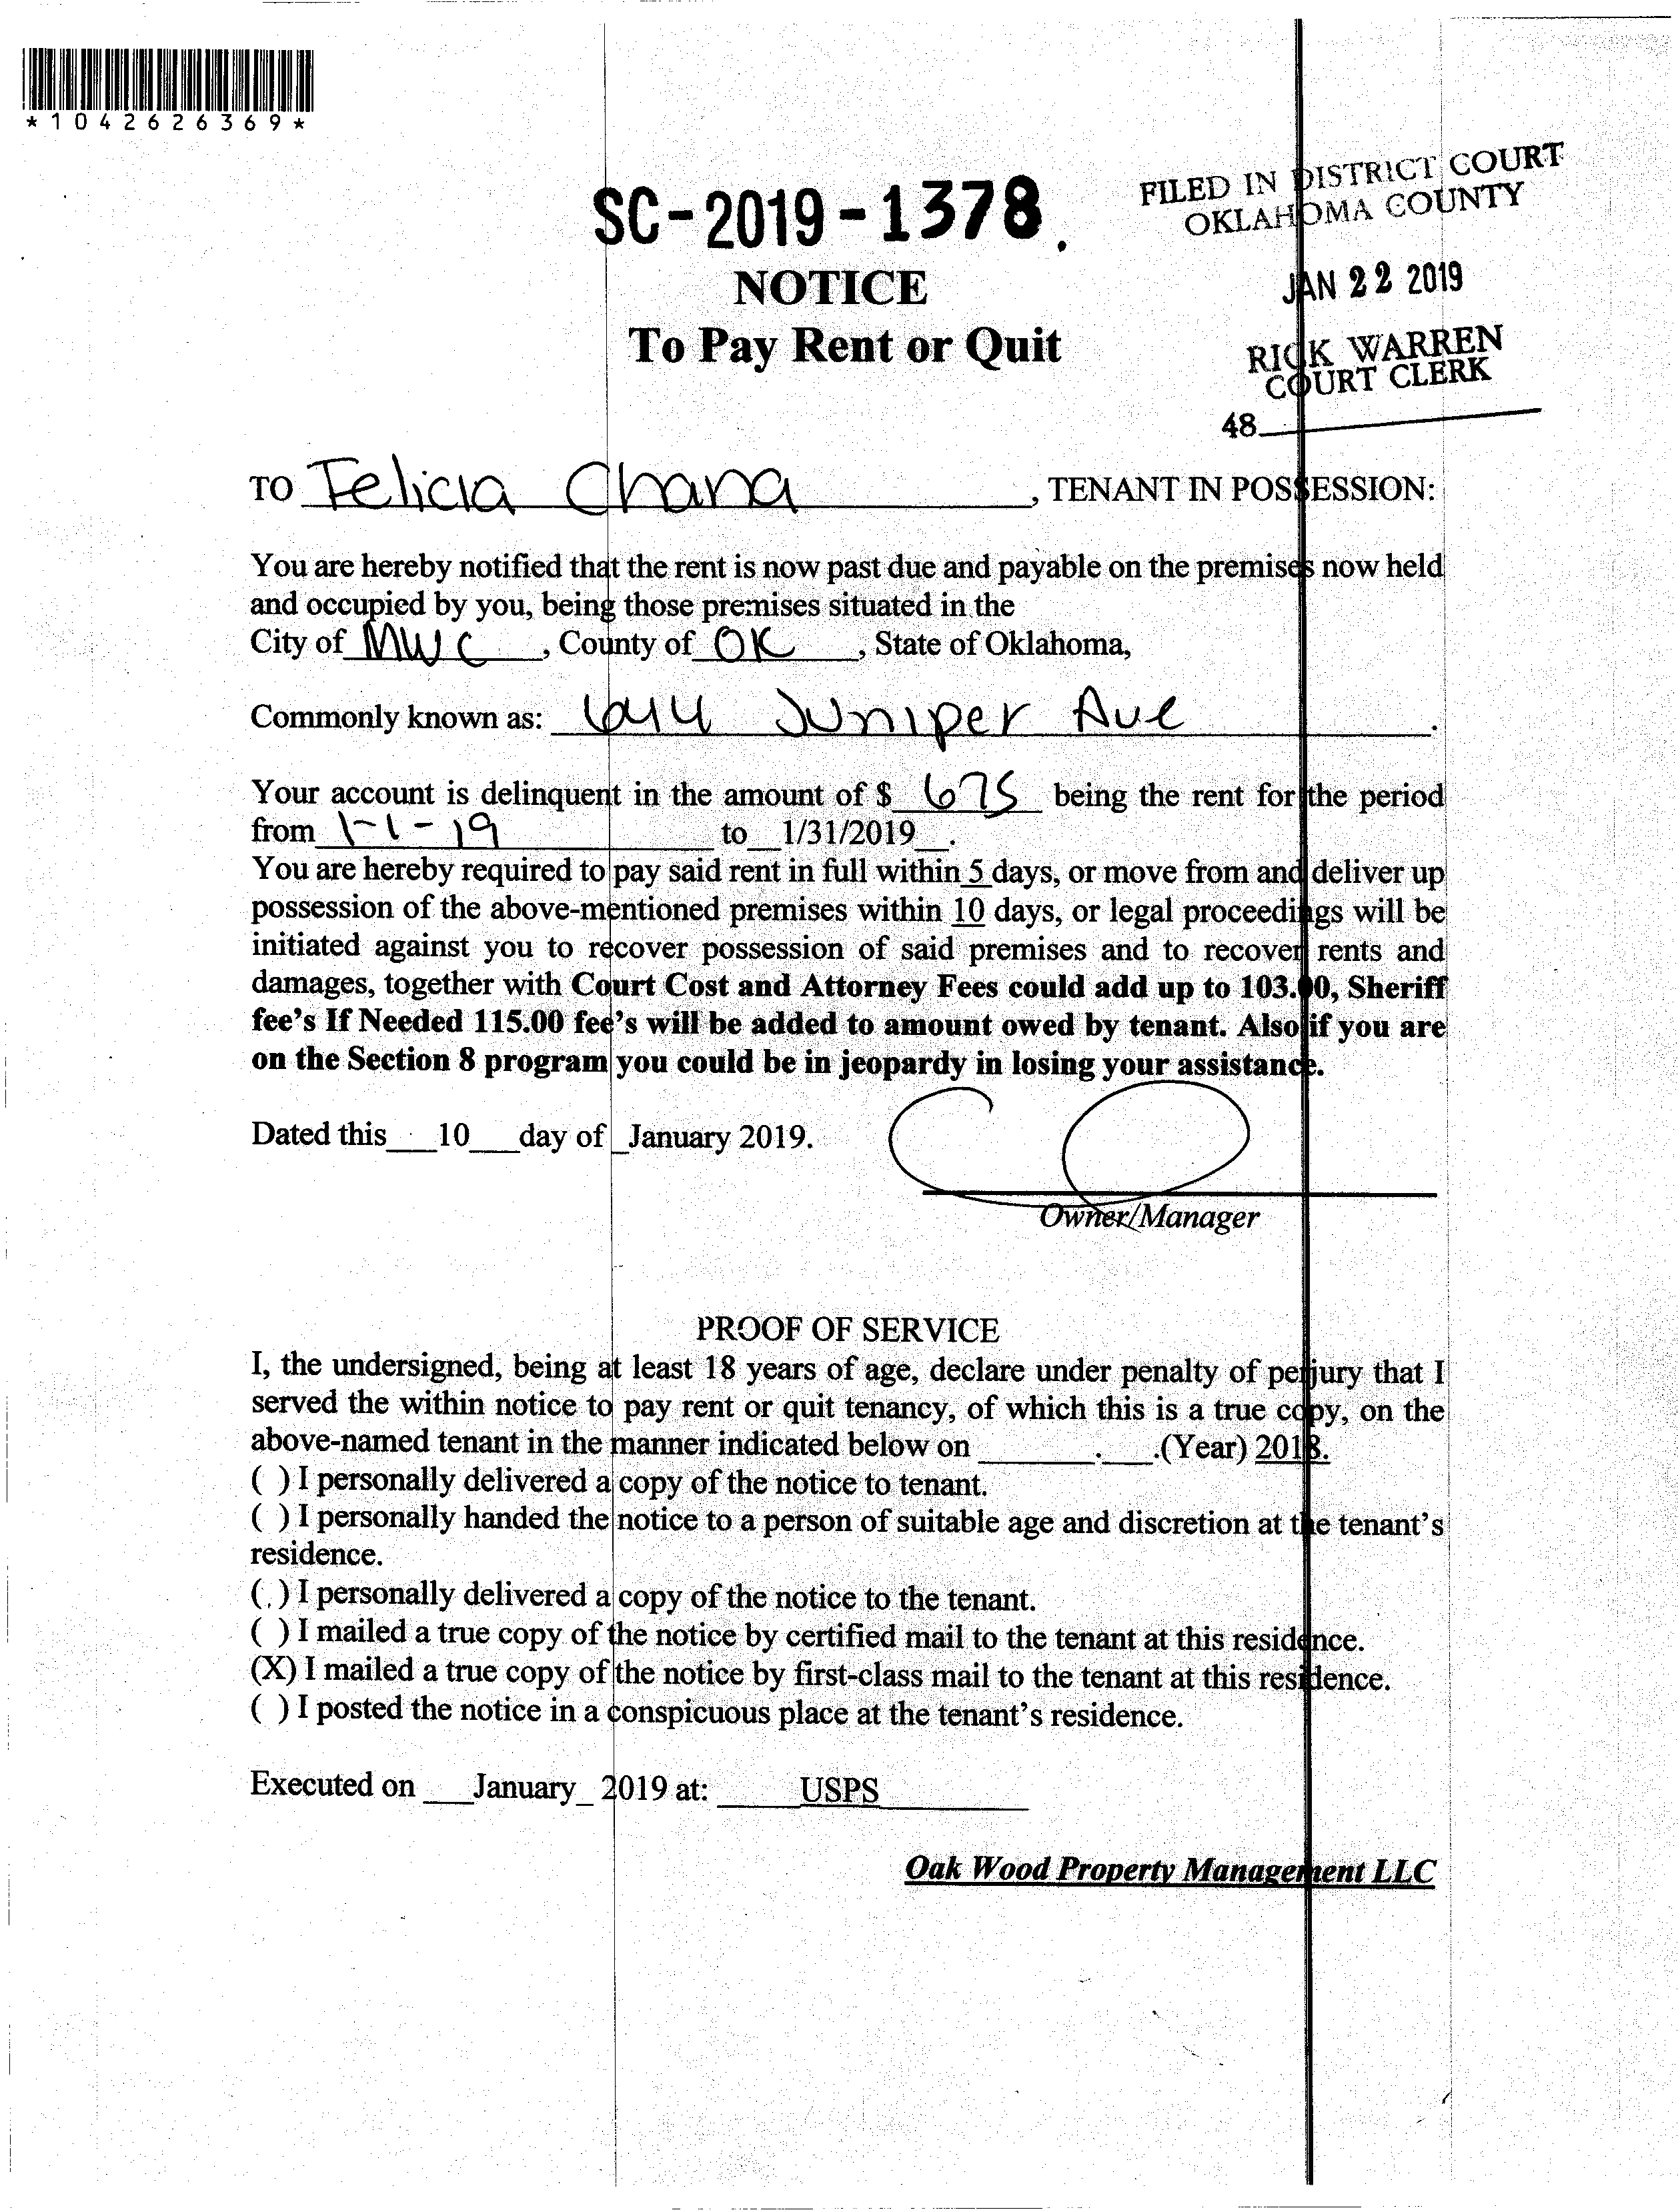 *1042626369*
SC-2019-1378.
FILED IN DISTRICT COURT
OKLAHOMA COUNTY
JAN 22 2019
RICK WARREN
COURT CLERK
48
NOTICE
To Pay Rent or Quit
TO Felicia Chana, TENANT IN POSSESSION:
You are hereby notified that the rent is now past due and payable on the premises now held
and occupied by you, being those premises situated in the
City of MWC, County of OK, State of Oklahoma,
Commonly known as: Juniper Ave.
Your account is delinquent in the amount of $ 675 being the rent for the period
from 1-1-19 to 1/31/2019.
You are hereby required to pay said rent in full within 5 days, or move from and deliver up
possession of the above-mentioned premises within 10 days, or legal proceedings will be
initiated against you to recover possession of said premises and to recover rents and
damages, together with Court Cost and Attorney Fees could add up to 103.00, Sheriff
fee's If Needed 115.00 fee's will be added to amount owed by tenant. Also if you are
on the Section 8 program you could be in jeopardy in losing your assistance.
Dated this 10 day of January 2019.
Owner/Manager
PROOF OF SERVICE
I, the undersigned, being at least 18 years of age, declare under penalty of perjury that I
served the within notice to pay rent or quit tenancy, of which this is a true copy, on the
above-named tenant in the manner indicated below on ______.___.(Year) 2018.
( ) I personally delivered a copy of the notice to tenant.
( ) I personally handed the notice to a person of suitable age and discretion at the tenant's
residence.
( ) I personally delivered a copy of the notice to the tenant.
( ) I mailed a true copy of the notice by certified mail to the tenant at this residence.
(X) I mailed a true copy of the notice by first-class mail to the tenant at this residence.
( ) I posted the notice in a conspicuous place at the tenant's residence.
Executed on ___January_ 2019 at: USPS
Oak Wood Property Management LLC